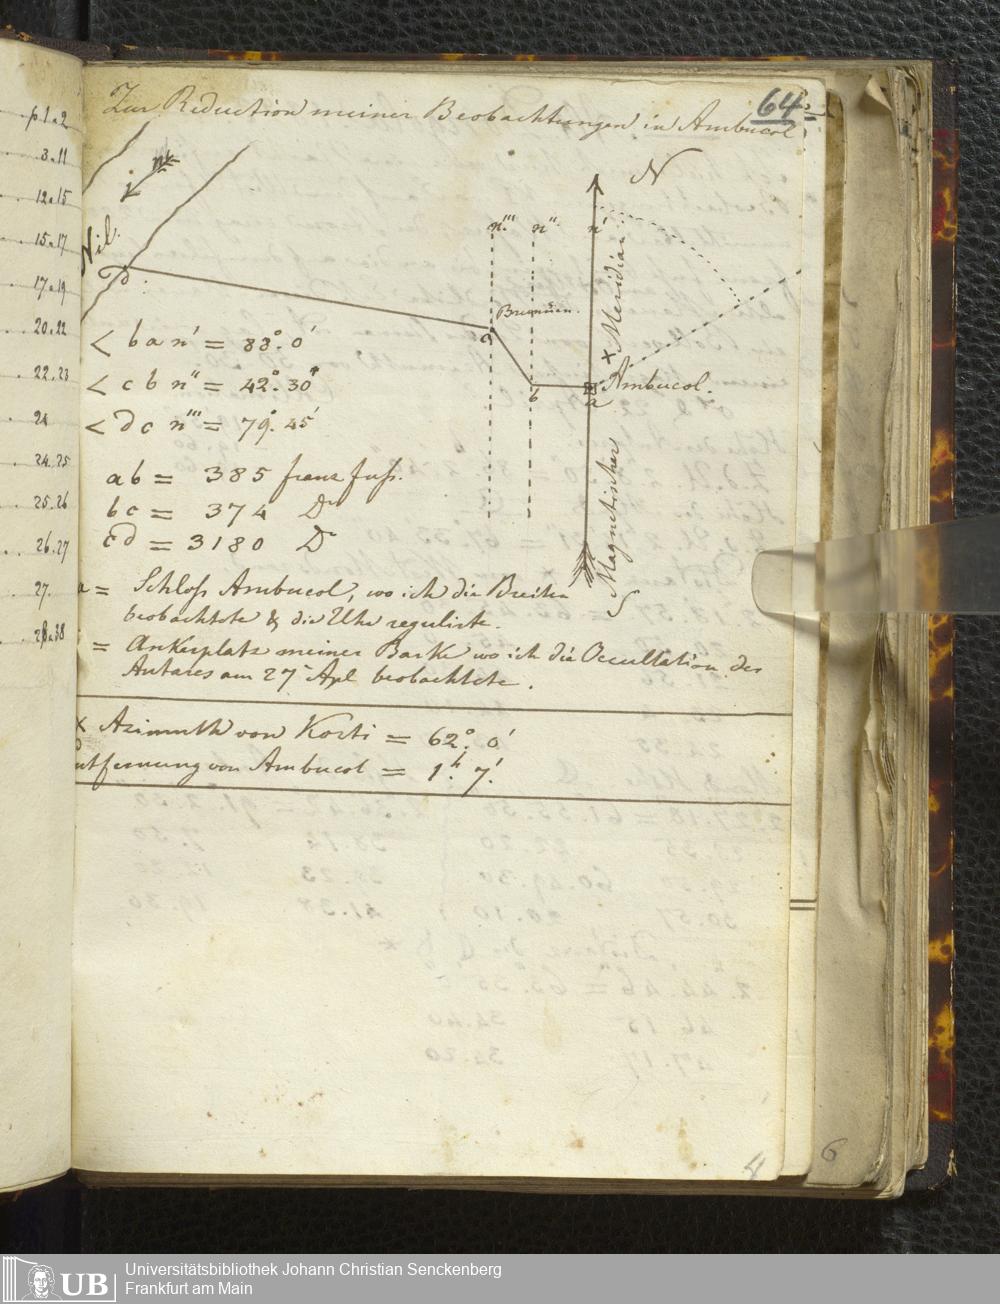 p. 1 a 2
3. 11
12 a 15
15 a 17
17 a 19
20. 22
22. 23
24
24. 25
25. 26
26. 27
27.
28 a 38
64
Zur Reduction meiner Beobachtungen in Ambucol
N
Nil.
n'''
n''
n'
d
Brunnen.
c
b
a
Ambucol.
× Magnetischer Meridian
S
< b a n' = 88°. 0'
< c b n'' = 42°. 30'
< d c n''' = 79°. 45'
ab = 385 franz fuss.
bc = 374 D°
cd = 3180 D°
a = Schloss Ambucol, wo ich die Breiten
beobachtete & die Uhr regulirte.
= Ankerplatz meiner Barke wo ich die Occultation des
Antares am 27 Apl beobachtete.
× Azimuth von Korti = 62°. 0'
Entfernung von Ambucol = 1h. 7'.
4
6
UB
Universitätsbibliothek Johann Christian Senckenberg
Frankfurt am Main